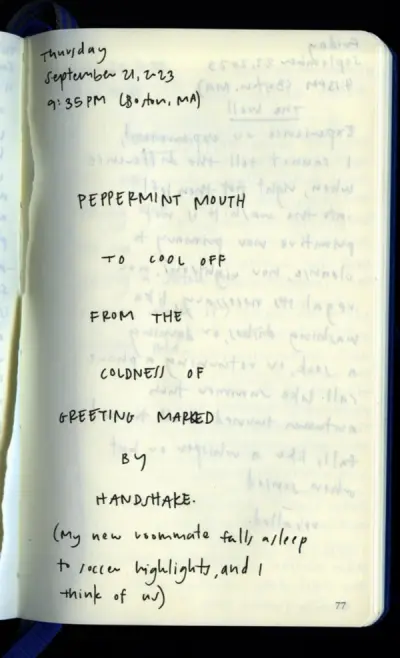 Thursday
September 21, 2023
9:35 PM (Boston, MA)
PEPPERMINT MOUTH
TO COOL OFF
FROM THE
COLDNESS OF
GREETING MARKED
BY
HANDSHAKE.
(My new roommate falls asleep
to soccer highlights, and I
think of us)
77